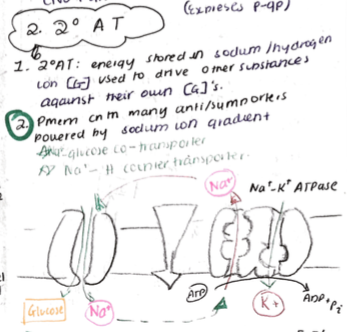 (Expreses P-gp)
2. 2° AT
1. 2°AT: energy stored in sodium/hydrogen
ion [G] used to drive other substances
against their own [G]'s.
2. Pmem cntn many anti/symporters
powered by sodium ion gradient
Na+-glucose co-transporter
Na+- H counter transporter.
Na+
Na+-K+ ATPase
ATP
ADP+Pi
Glucose
Na+
K+